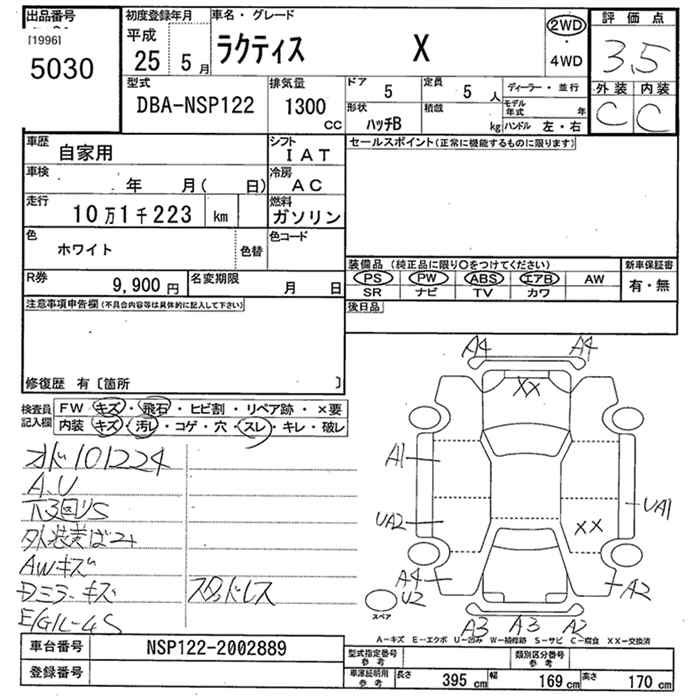 出品番号
[1996]
5030
初度登録年月
平成
25 5 月
車名・グレード
ラクティス X
2WD
・
4WD
評価点
3.5
外装 内装
C C
型式
DBA-NSP122
排気量
1300
CC
ドア
5
定員
5 人
形状
ハッチB
積載
kg
ディーラー・並行
モデル年式 年
ハンドル 左・右
車歴
自家用
シフト
IAT
車検
年 月( 日)
冷房
AC
走行
10万1千223 km
燃料
ガソリン
色
ホワイト
色替
色コード
R券
9,900 円
名変期限
月 日
セールスポイント(正常に機能するものに限ります)
装備品(純正品に限り○をつけてください)
PS PW ABS エアB AW
SR ナビ TV カワ
新車保証書
有・無
後日品
注意事項申告欄(不具合内容等は具体的に記入して下さい)
修復歴 有〔箇所 〕
検査員記入欄
FW キズ・飛石・ヒビ割・リペア跡・×要
内装 キズ・汚レ・コゲ・穴・スレ・キレ・破レ
101224
A,U
下回りS
AWキズ
Dミラーキズ
スタッドレス
A4 A4
XX
A1
UA2
UA1
XX
A4
U2
A2
A3 A3 A2
スペア
A-キズ E-エクボ U-凹み W-補修跡 S-サビ C-腐食 XX-交換済
車台番号
NSP122-2002889
登録番号
型式指定番号
参考
類別区分番号
参考
車庫証明用
参考
長さ 395 cm 幅 169 cm 高さ 170 cm